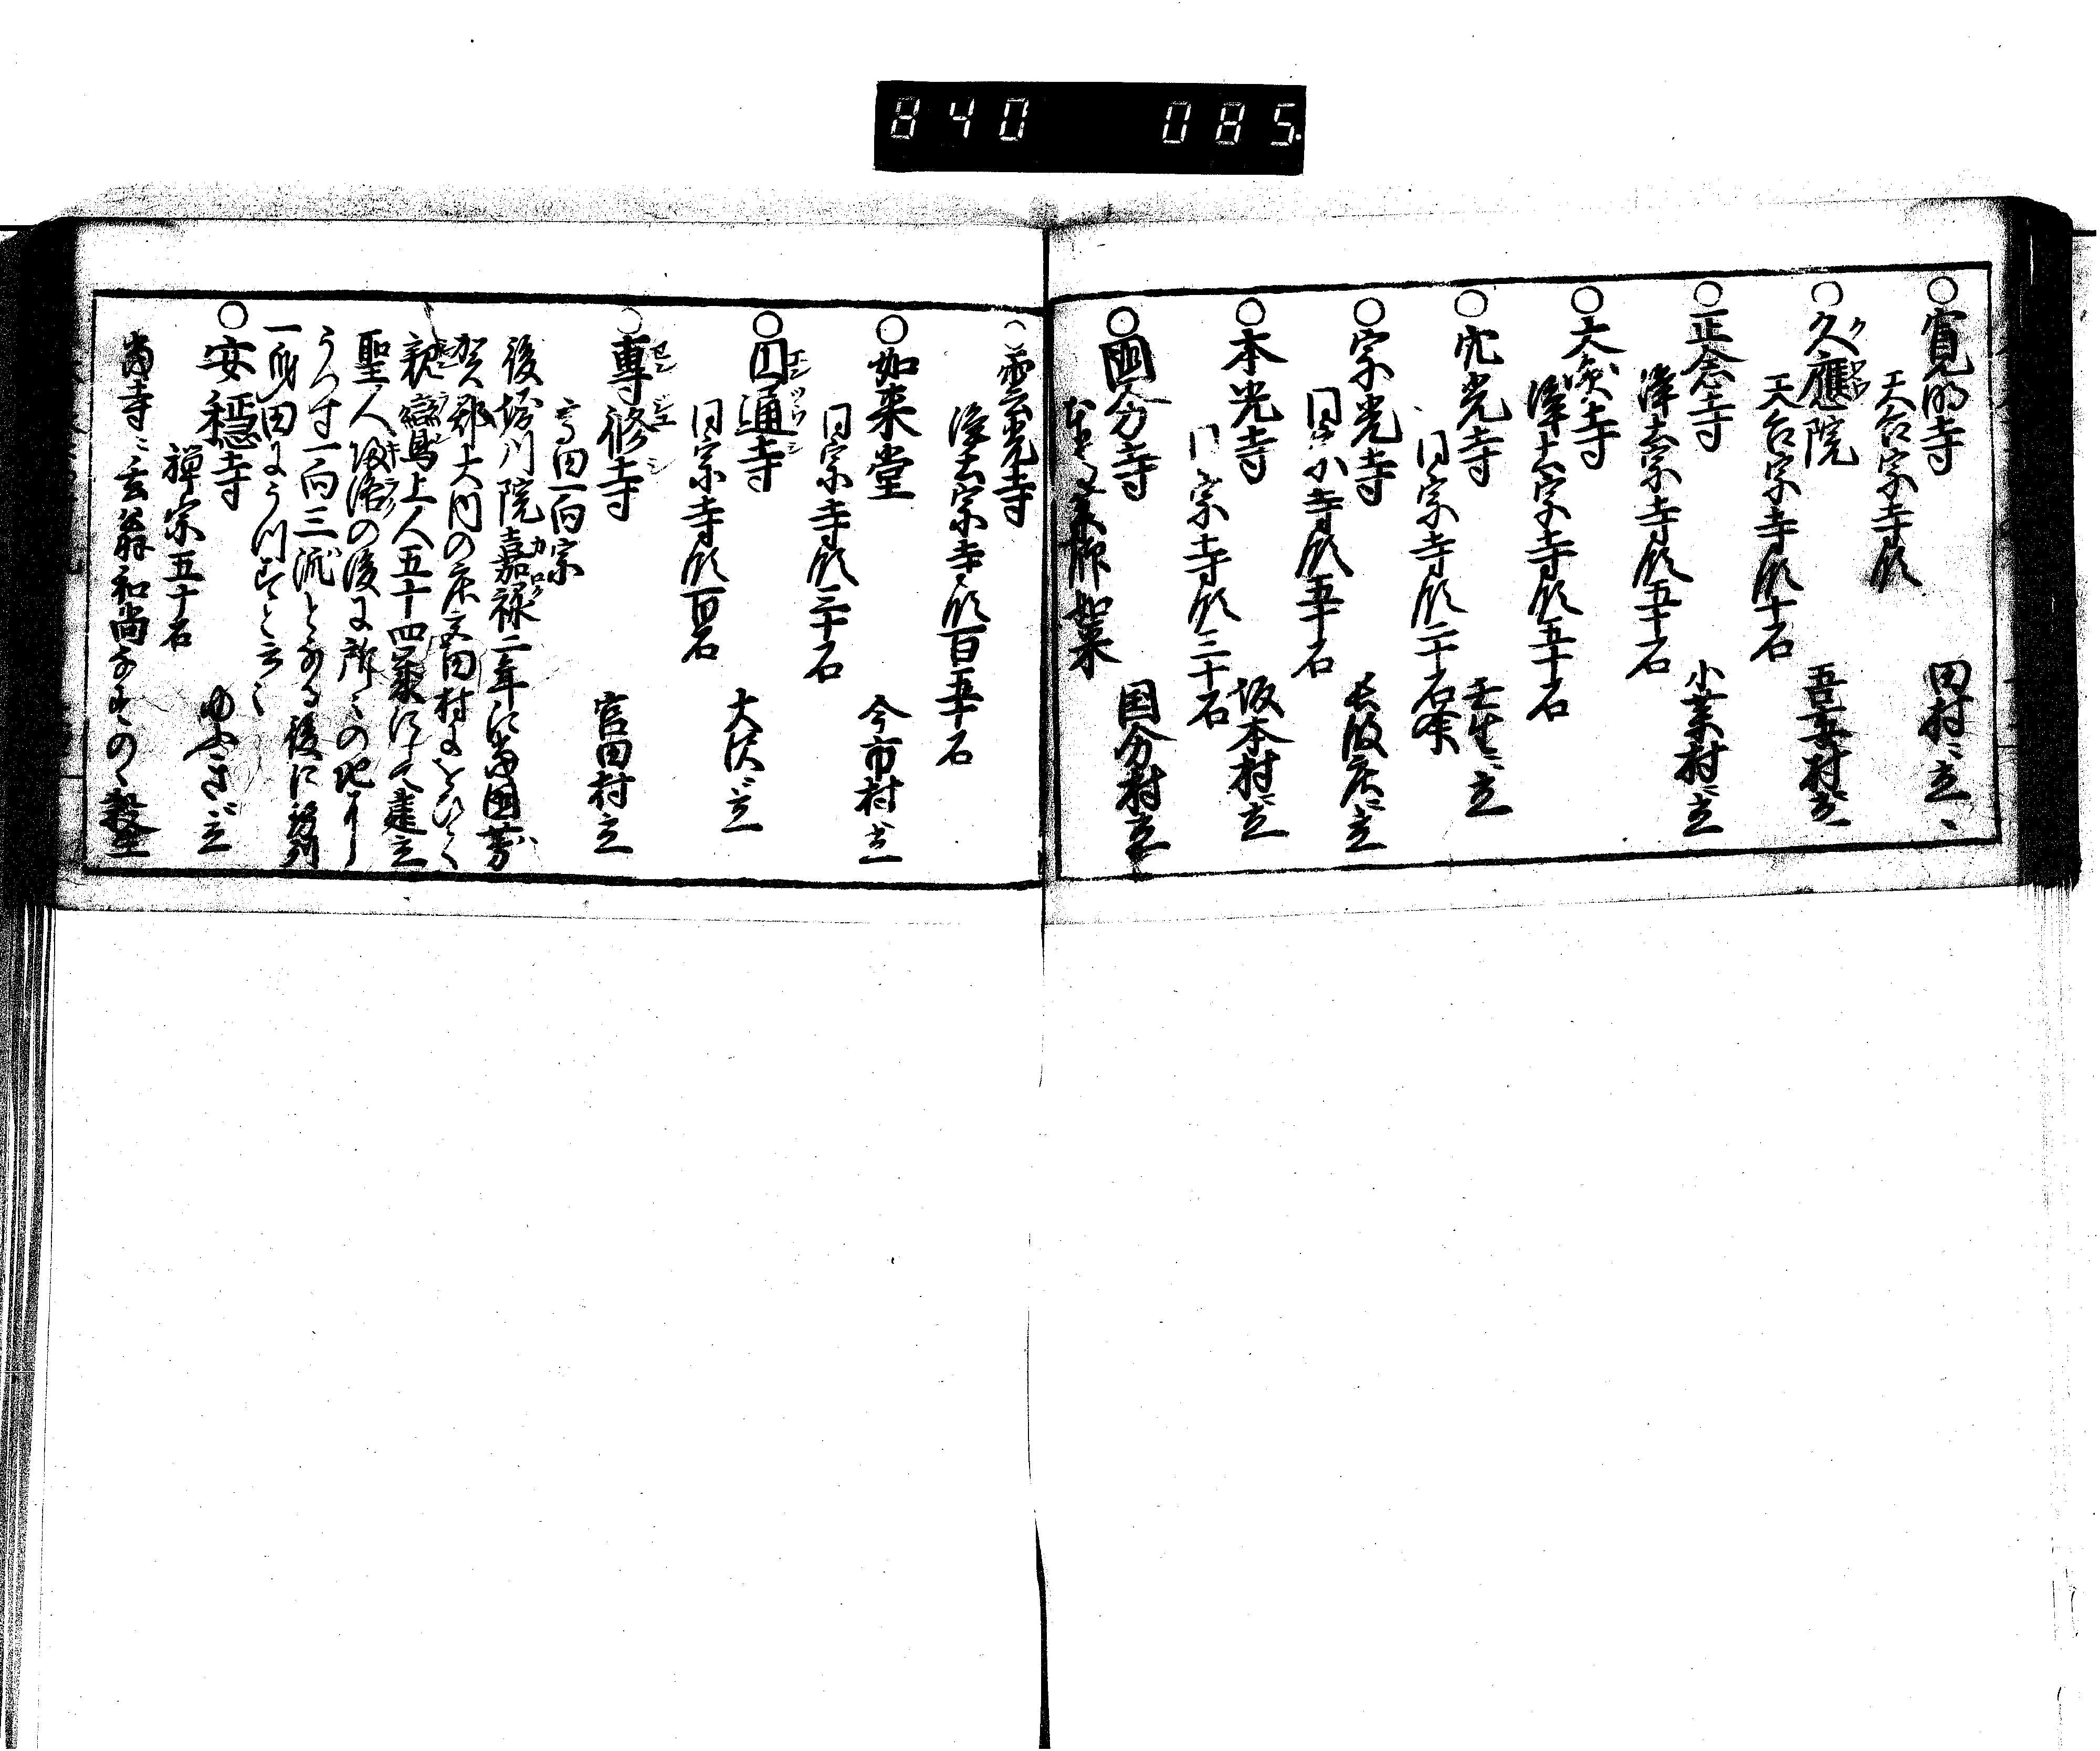 840 085
○寛明寺 田村ニ立
天台宗寺領
○久應院 吾妻村ニ立
天台宗寺領十石
○正念寺 小薬村ニ立
浄土宗寺領五十石
○大寺
浄土宗寺領五十石
○光寺 壬生ニ立
同宗寺領二十石
○宗光寺 長沼ニ立
同宗寺領五十石
○本光寺 坂本村ニ立
同宗寺領三十石
○国分寺 国分村ニ立
薬師如来
○雲光寺
浄土宗寺領百五十石
○如来堂 今市村ニ立
同宗寺領三十石
○円通寺 大沢ニ立
同宗寺領百石
○専修寺 官田村立
高田一向宗
後堀川院嘉禄二年に当国芳
賀郡大内の庄高田村にをひて
親鸞上人五十四歳にして建立
聖人帰洛の後に所々の地に
うつす一向三流となる後に勢州
一身田にうつすと云々
○安穏寺 ゆふきニ立
禅宗五十石
当寺ニ玄翁和尚なすのゝ殺生